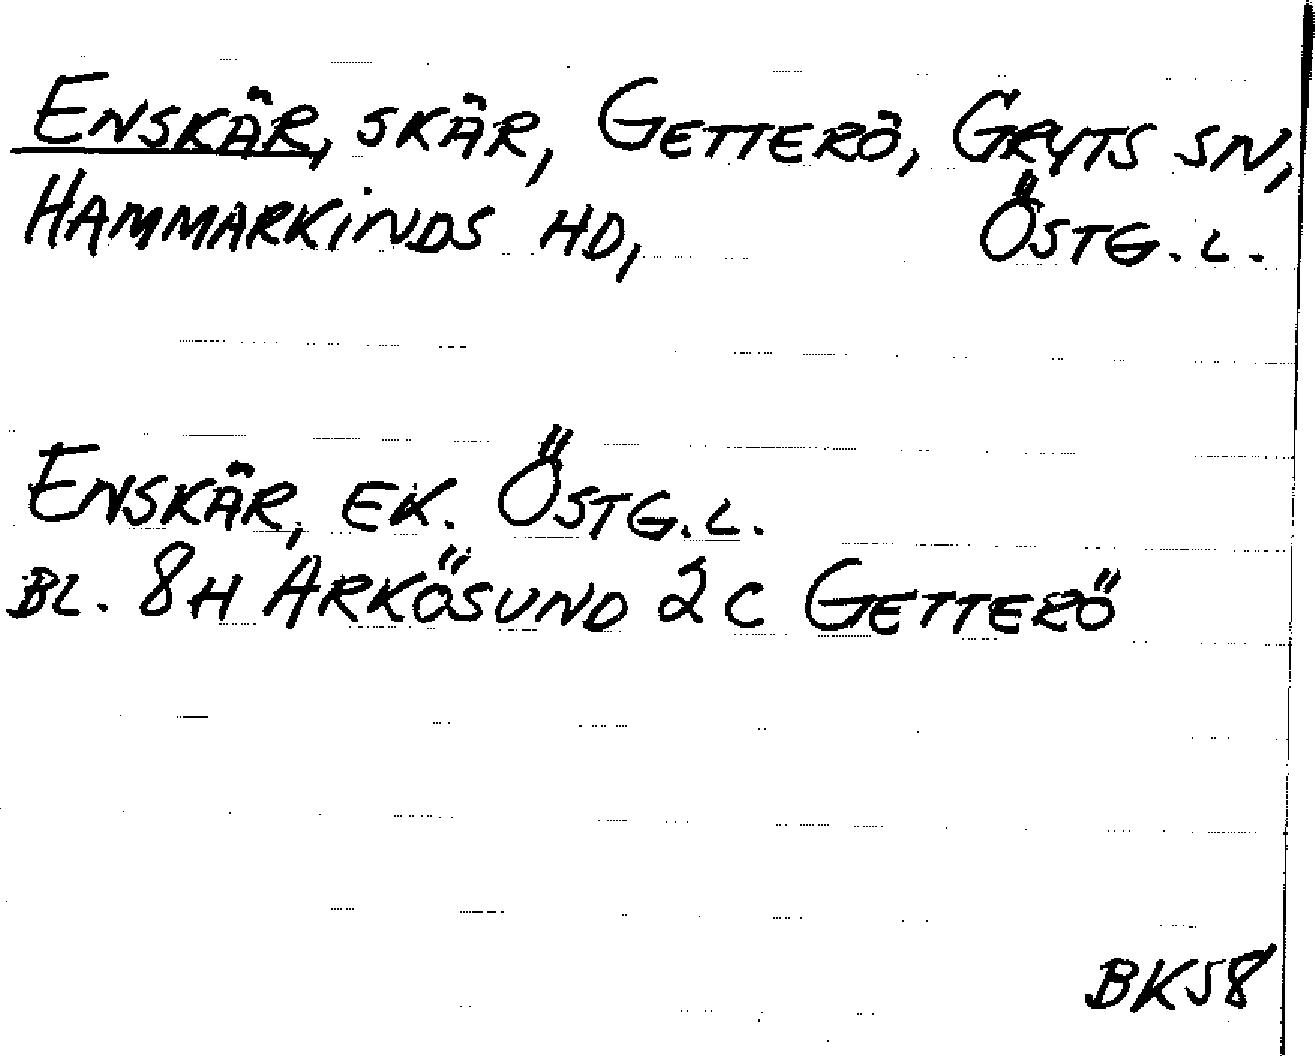 ENSKÄR, SKÄR, GETTERÖ, GRYTS SN,
HAMMARKINDS HD, ÖSTG. L.
ENSKÄR, EK. ÖSTG. L.
BL. 8H ARKÖSUND 2C GETTERÖ
BK58